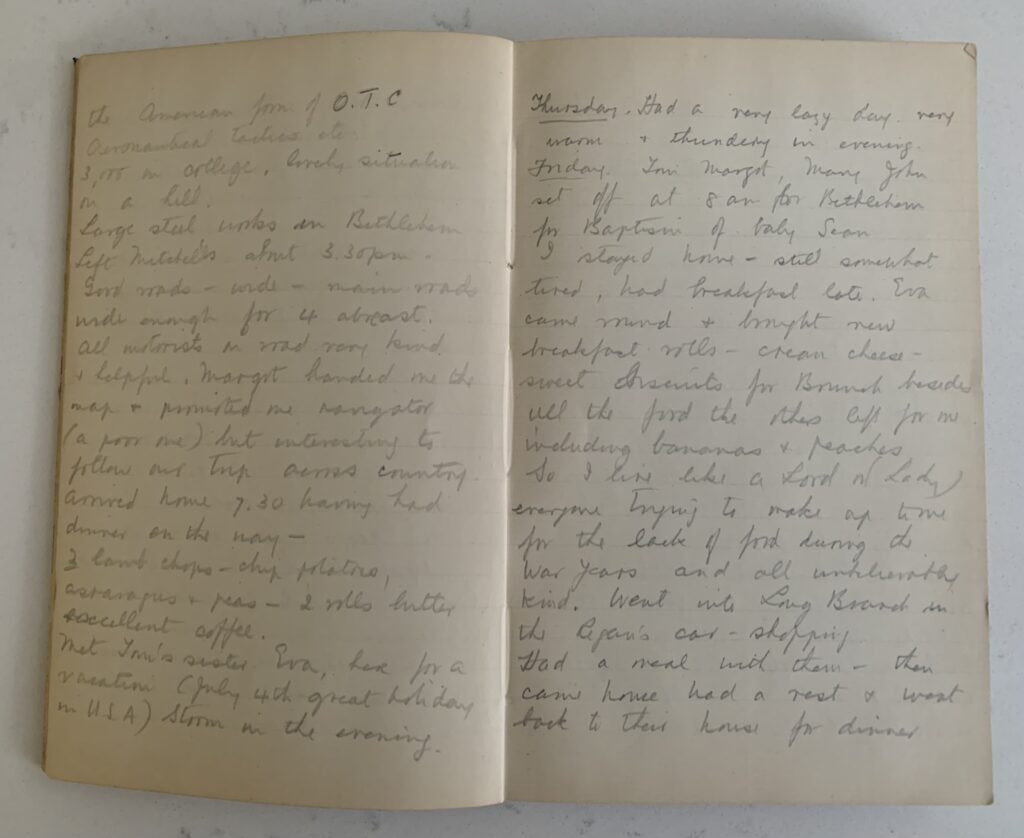 the American form of O.T.C
Aeronautical tactics etc.
3,000 in college, lovely situation
on a hill.
Large steel works in Bethlehem
Left Mitchell's about 3.30pm.
Good roads - wide - main roads
wide enough for 4 abreast.
All motorists on road very kind
+ helpful. Margot handed me the
map + promoted me navigator
(a poor one) but interesting to
follow our trip across country.
arrived home 7.30 having had
dinner on the way -
3 lamb chops - chip potatoes,
asparagus + peas - 2 rolls butter
excellent coffee.
Met Toni's sister Eva, here for a
vacation (July 4th great holiday
in U.S.A) Storm in the evening.
Thursday. Had a very lazy day. very
warm + thundery in evening.
Friday. Toni Margot, Mary John
set off at 8 am for Bethlehem
for Baptism of baby Sean
I stayed home - still somewhat
tired, had breakfast late. Eva
came round + brought new
breakfast rolls - cream cheese -
sweet biscuits for Brunch besides
all the food the others left for me
including bananas + peaches
So I live like a Lord (or Lady)
everyone trying to make up to me
for the lack of food during the
War Years and all unbelievably
kind. Went into Long Branch in
the Regan's car - shopping.
Had a meal with them - then
came home had a rest + went
back to their house for dinner